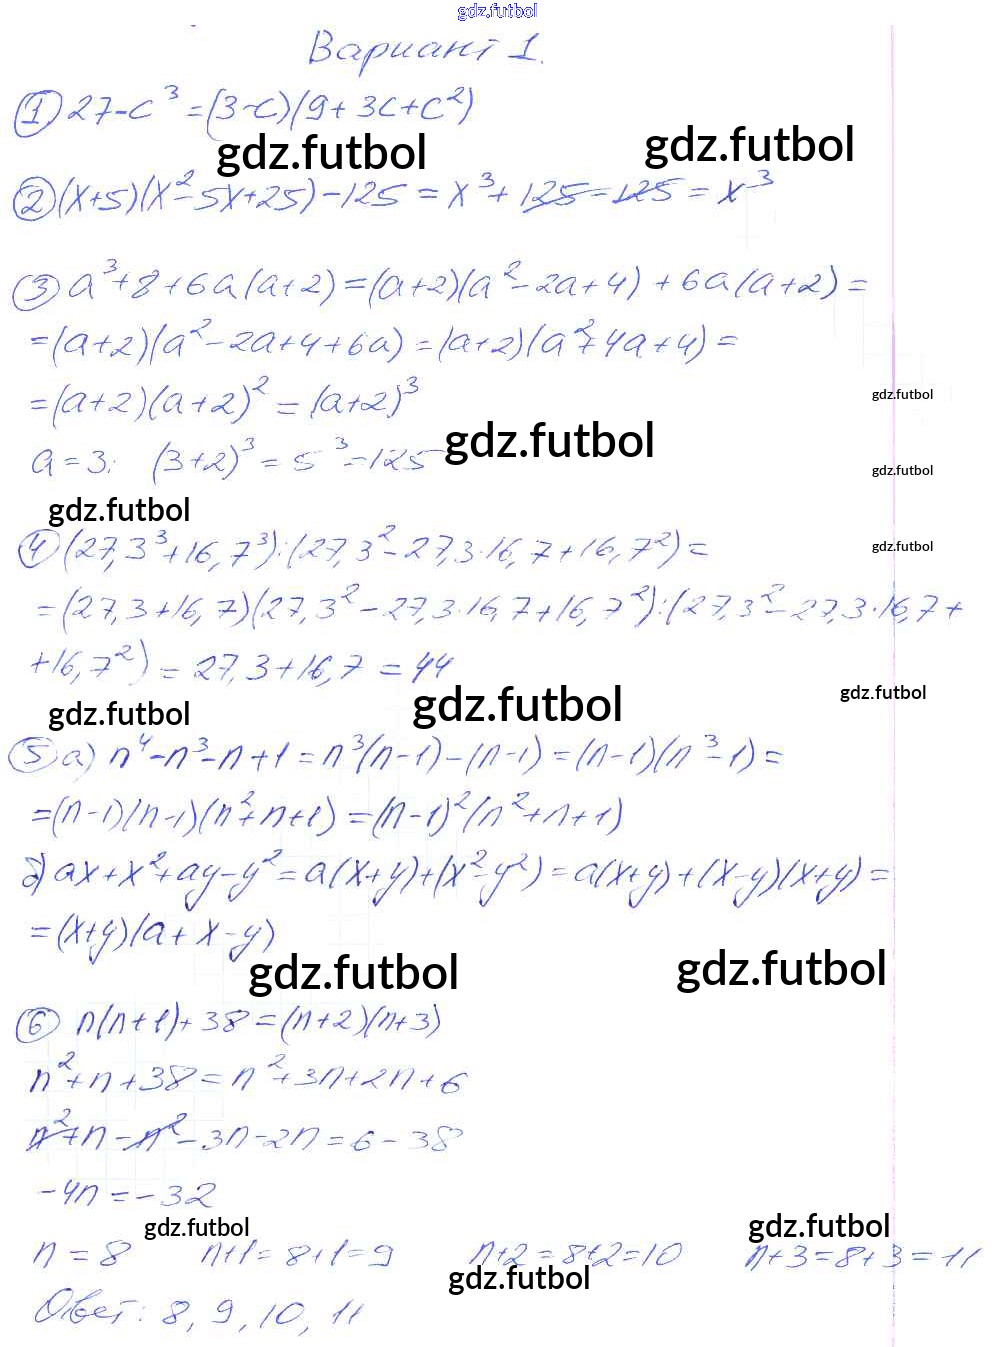 gdz.futbol
Вариант 1.
① 27-c³ = (3-c)(9+3c+c²)
gdz.futbol gdz.futbol
② (x+5)(x²-5x+25)-125 = x³+125-125 = x³
③ a³+8+6a(a+2) = (a+2)(a²-2a+4)+6a(a+2) =
= (a+2)(a²-2a+4+6a) = (a+2)(a²+4a+4) =
= (a+2)(a+2)² = (a+2)³
gdz.futbol
a = 3: (3+2)³ = 5³ = 125
gdz.futbol
gdz.futbol
gdz.futbol
④ (27,3³+16,7³):(27,3²-27,3·16,7+16,7²) =
gdz.futbol
= (27,3+16,7)(27,3²-27,3·16,7+16,7²):(27,3²-27,3·16,7+
+16,7²) = 27,3+16,7 = 44
gdz.futbol gdz.futbol gdz.futbol
⑤ а) n⁴-n³-n+1 = n³(n-1)-(n-1) = (n-1)(n³-1) =
= (n-1)(n-1)(n²+n+1) = (n-1)²(n²+n+1)
б) ax+x²+ay-y² = a(x+y)+(x²-y²) = a(x+y)+(x-y)(x+y) =
= (x+y)(a+x-y)
gdz.futbol gdz.futbol
⑥ n(n+1)+38 = (n+2)(n+3)
n²+n+38 = n²+3n+2n+6
n²+n-n²-3n-2n = 6-38
-4n = -32
gdz.futbol gdz.futbol
n = 8 n+1 = 8+1 = 9 n+2 = 8+2 = 10 n+3 = 8+3 = 11
gdz.futbol
Ответ: 8, 9, 10, 11